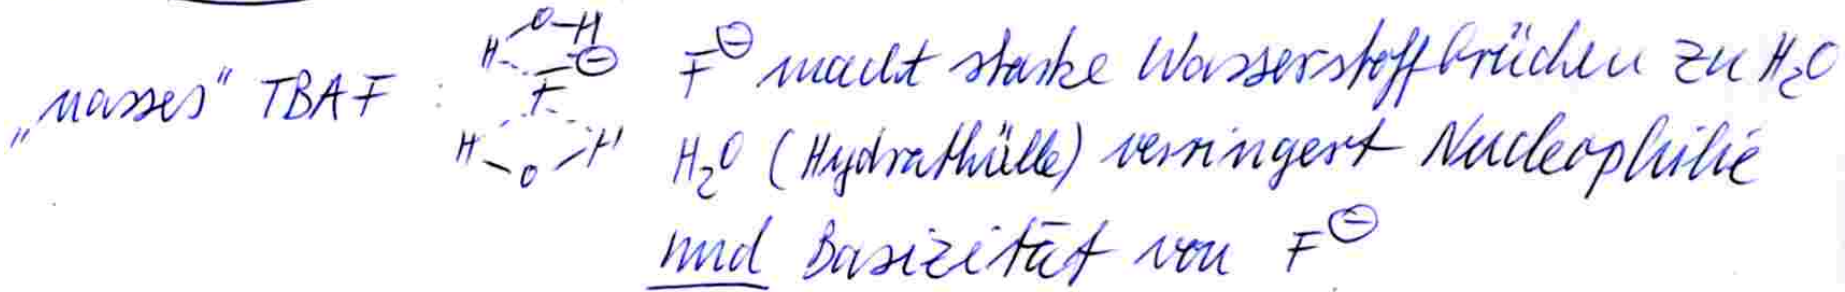 „nasses" TBAF : F⊖ macht starke Wasserstoffbrücken zu H₂O
H₂O (Hydrathülle) verringert Nucleophilie
und Basizität von F⊖
H O-H
F⊖
H O H